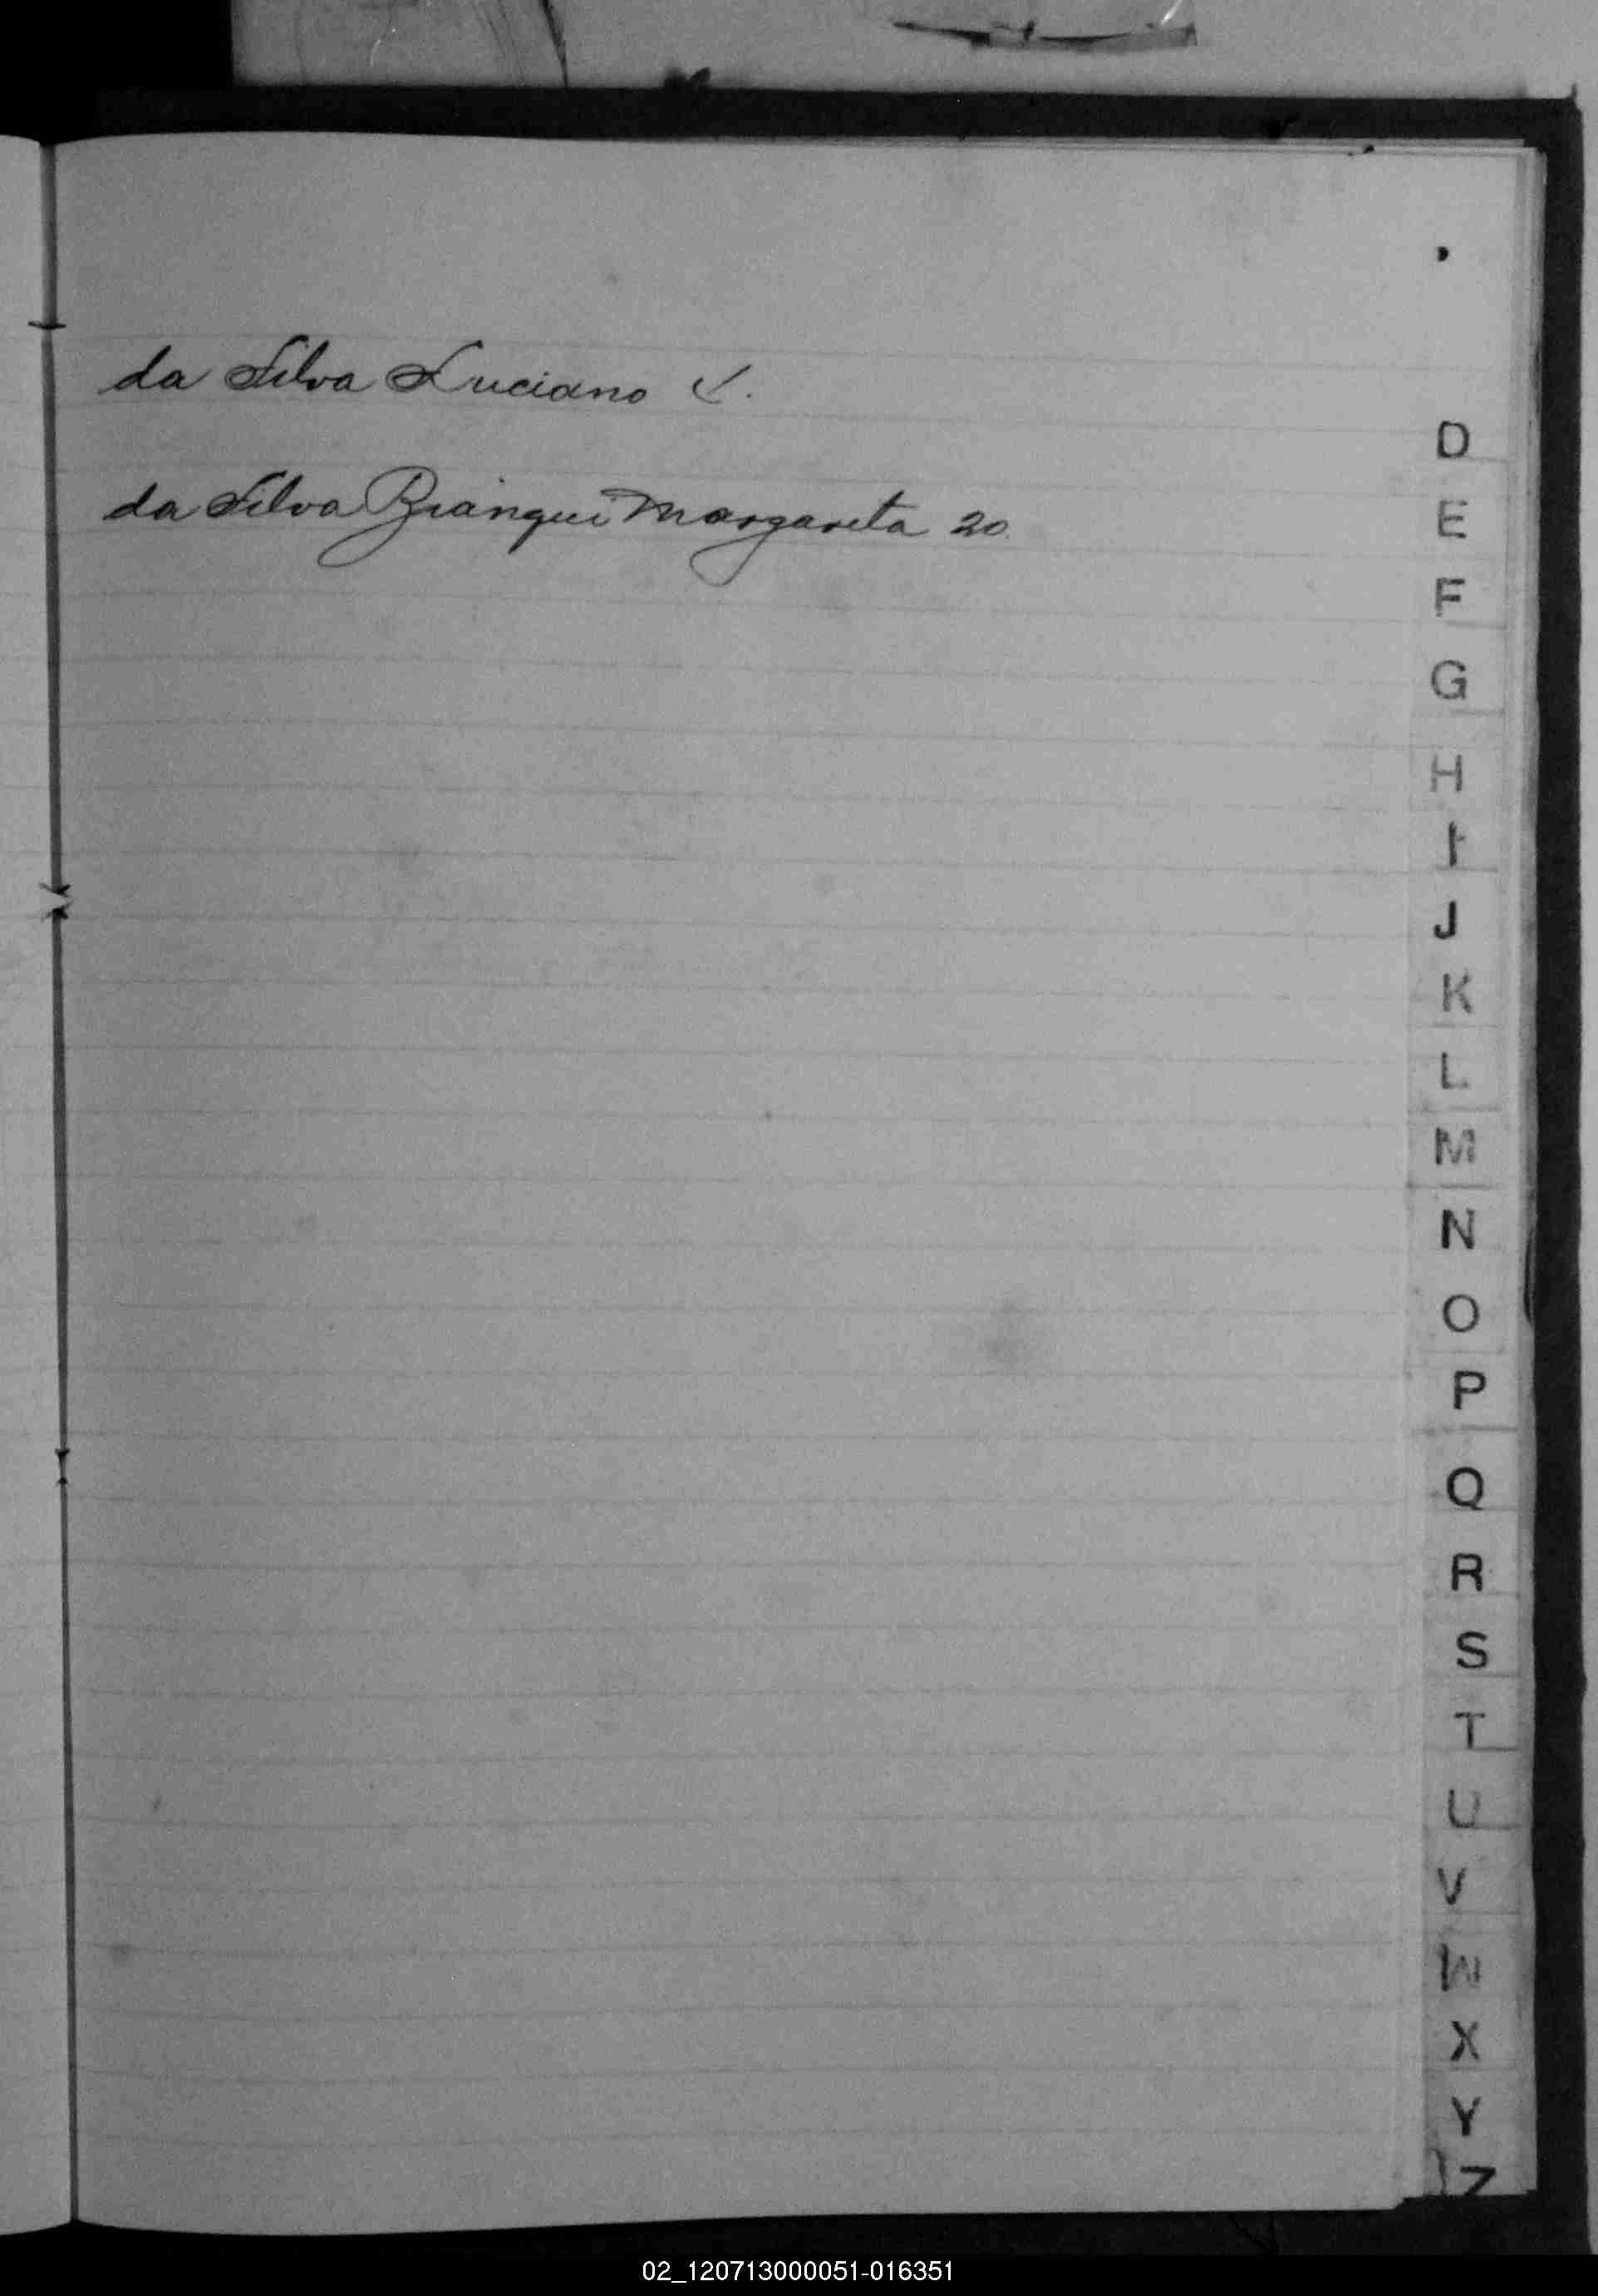 da Silva Luciano
da Silva Bianqui Margareta 20
D
E
F
G
H
I
J
K
L
M
N
O
P
Q
R
S
T
U
V
W
X
Y
Z
02_120713000051-016351